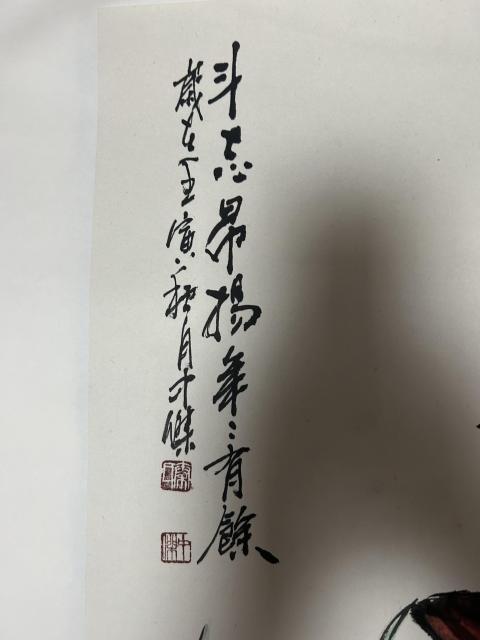 斗志昂揚年〻有餘
歲在壬寅秋月中傑